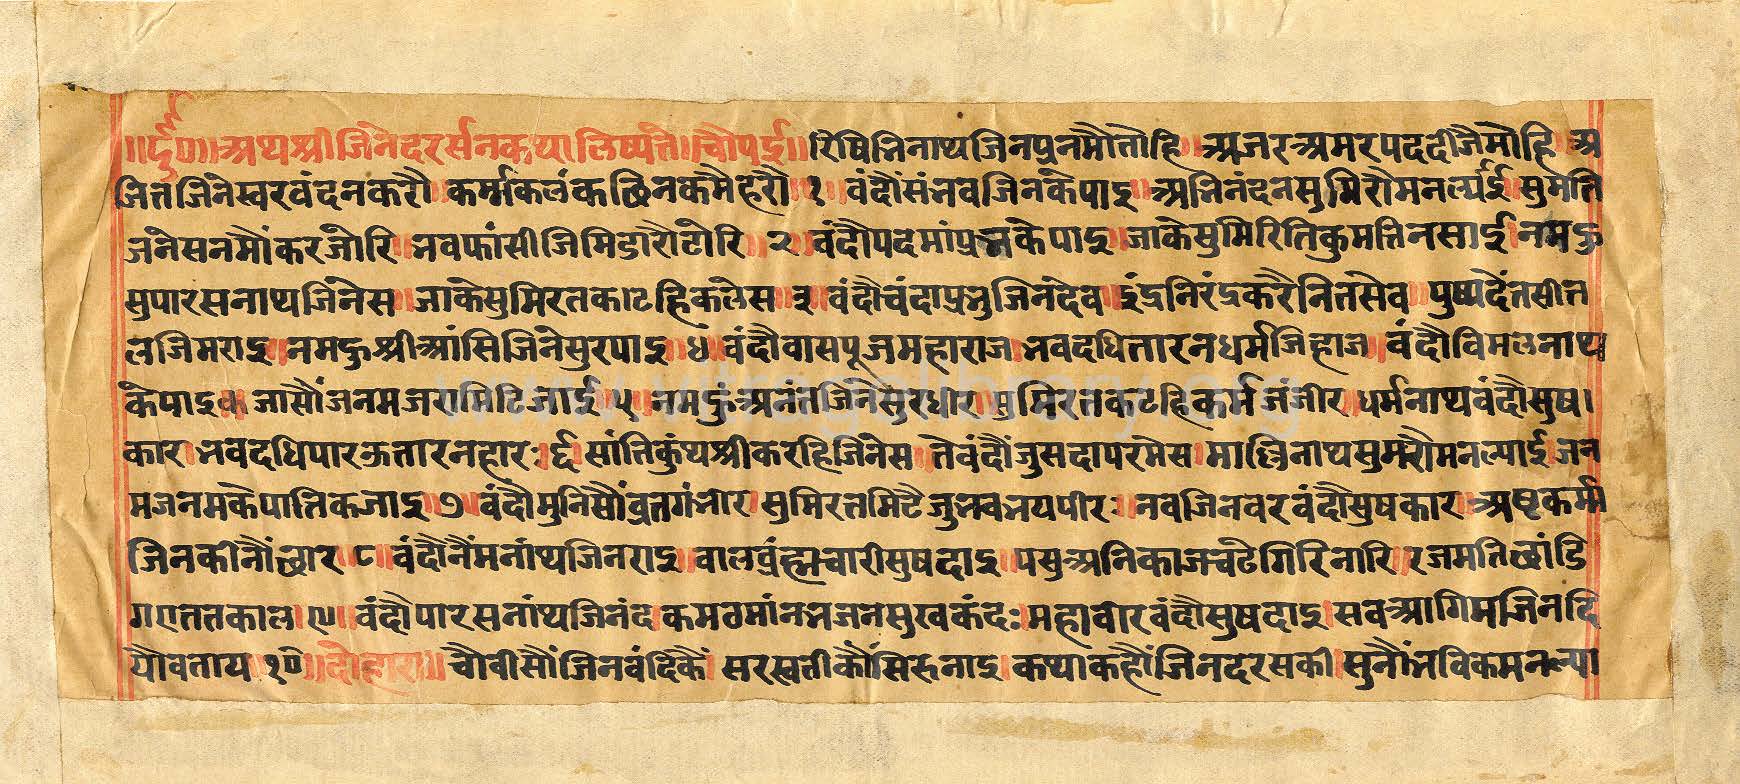 ॥र्द॥०॥ अथश्रीजिनेदरर्सनकथालिष्यते॥चौपई॥रिषिभिनाथजिनप्रनमौतोहि॥अजरअमरपददीजैमोहि॥अ
जितजिनेस्वरवंदनकरौ॥कर्म्मकलंकछिनकमैहरौ॥१॥वंदौंसंभवजिनकैपाइ॥अभिनंदनसुमिरौमनल्याई॥सुमति
जनेसनमौंकरजोरि॥भवफांसीजिमिडारौटोरि॥२॥वंदौपदमांप्रभकेपाइ॥जाकेसुमिरितिकुमतिनसाई॥नमऊ
सुपारसनाथजिनेस॥जाकेसुमिरतकाटहिकलेस॥३॥वंदौचंदाप्रभुजिनंदेव॥इंद्रनिरंद्रकरैनितसेव॥पुष्पदंतसीत
लजिमराइ॥नमऊश्रीआंसिजिनेसुरपाइ॥४॥वंदौवासपूजमहाराज॥भवदधितारनधर्मजिहाज॥वंदौविमलनाथ
केपाइ॥जासौंजनमजरामिटिजाई॥५॥नमऊंअनंतजिनेसुरधीर॥सुमिरतकटहिकर्मजंजीर॥धर्मनाथवंदौसुष।
कार॥भवदधिपारऊतारनहारः॥र्द॥सांतिकुंथश्रीकरहिजिनेस॥तेवंदौंजुसदापरमेस॥मल्लिनाथसुमरौमनल्याई॥जन
मजनमकेपातिकजाइ॥७॥वंदौमुनिसौंव्रतगंभीर॥सुमिरतमिटैजुभवभयपीरः॥नवजिनवरवंदौसुषकार॥अष्टकर्म्म
जिनकीनौंछार॥८॥वंदौनैंमनांथजिनराइ॥वालव्रंह्मचारीसुषदाइ॥पसुअनिकाजचढेगिरिनारि॥रजमतिछांडि
गएततकाल॥९॥वंदौपारसनांथजिनंद॥कमठमांनभजनेसुखकंदः॥महावीरवंदौसुषदाइ॥सवआगिमजिनदि
यौवताय॥१०॥दोहारा॥चौवीसौंजिनवंदिकैं॥सरस्वतीकौंसिरुनाइ॥कथाकहौंजिनदरसकी॥सुनौंभविकमनल्या
www.vitragelibrary.org